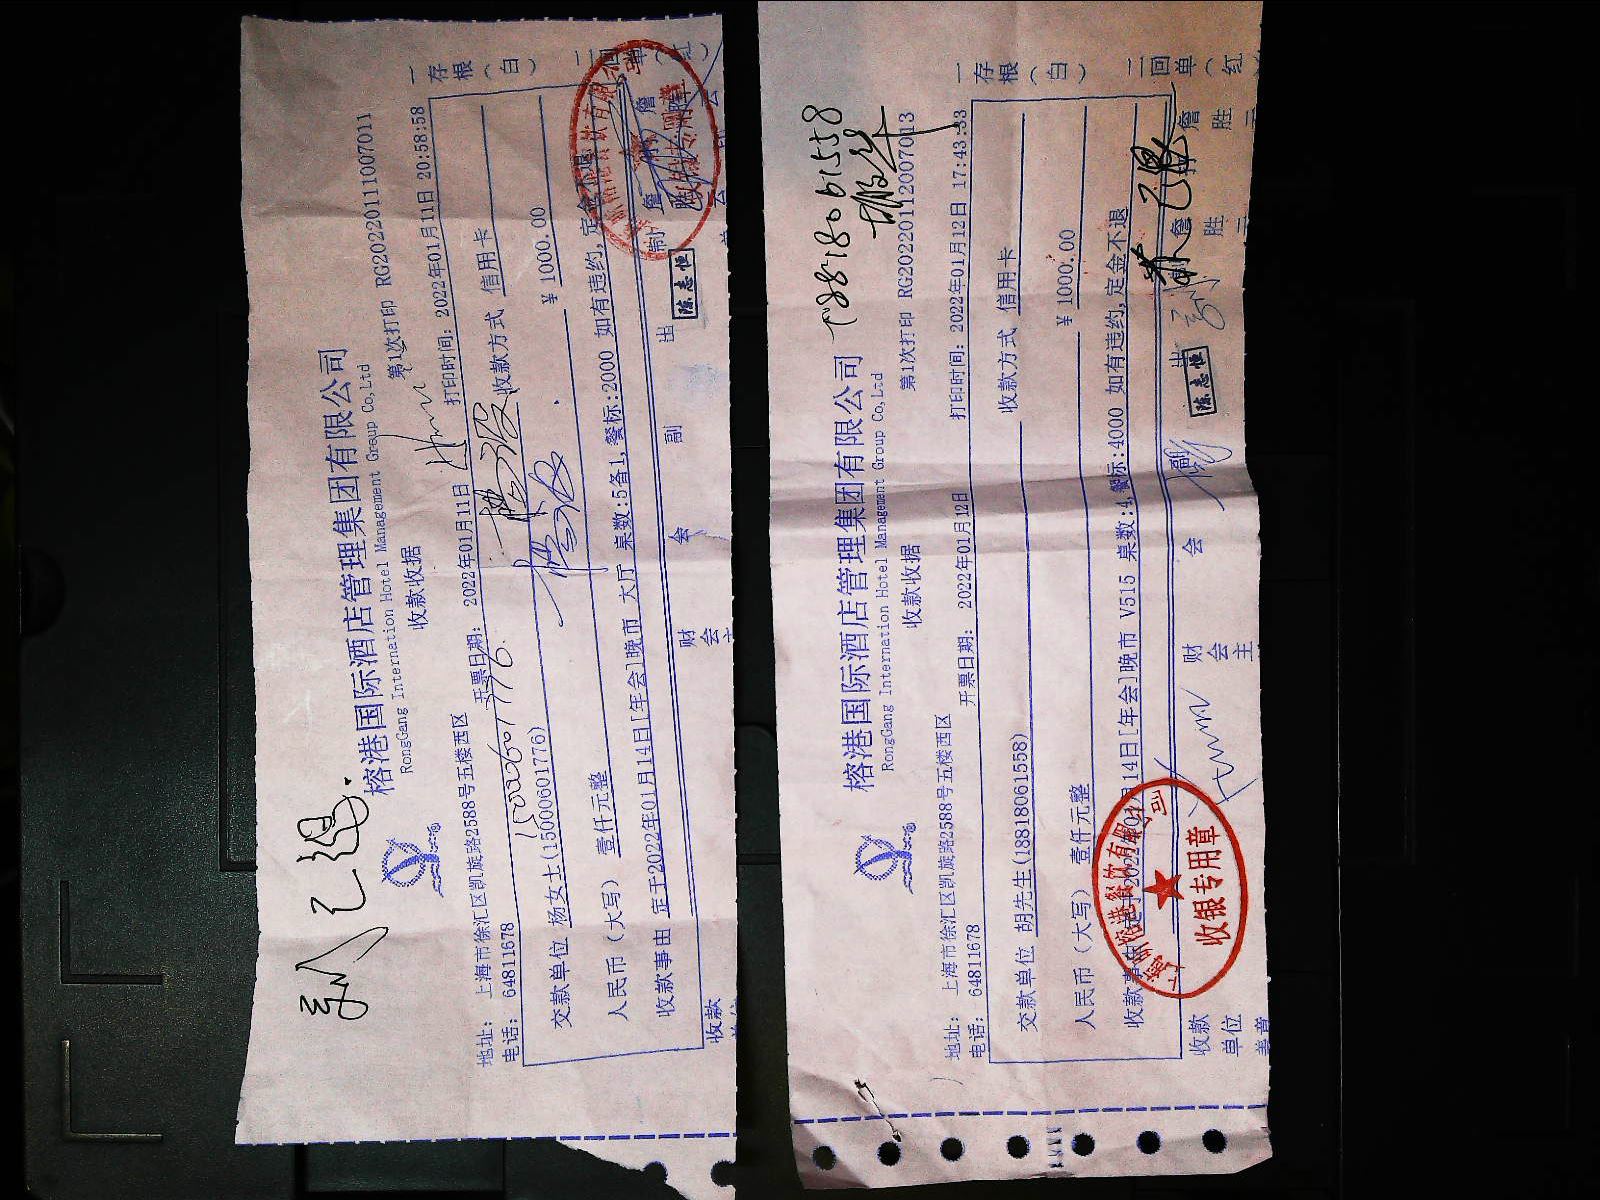 榕港国际酒店管理集团有限公司
RongGang Internation Hotel Management Group Co,Ltd
收款收据
第1次打印 RG20220111007011
地址： 上海市徐汇区凯旋路2588号五楼西区
电话： 64811678
15000601776
开票日期： 2022年01月11日
打印时间：2022年01月11日 20:58:58
交款单位 杨女士(15000601776)
收款方式 信用卡
人民币（大写） 壹仟元整
￥ 1000.00
收款事由 定于2022年01月14日[年会]晚市 大厅 桌数:5备1,餐标:2000 如有违约,定金不退
收款
财 会 副 出
会
陈志恒
一 存根（白）
二 回单（红）
18818061558
榕港国际酒店管理集团有限公司
RongGang Internation Hotel Management Group Co,Ltd
收款收据
第1次打印 RG20220112007013
地址： 上海市徐汇区凯旋路2588号五楼西区
电话： 64811678
开票日期： 2022年01月12日
打印时间：2022年01月12日 17:43:33
交款单位 胡先生(18818061558)
收款方式 信用卡
人民币（大写） 壹仟元整
￥ 1000.00
收款事由 定于2022年01月14日[年会]晚市 V515 桌数:4,餐标:4000 如有违约,定金不退
收款
单位
财 会 副 出
会
主
陈志恒
收银专用章
一 存根（白）
二 回单（红